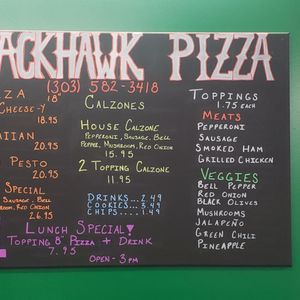 ACKHAWK PIZZA
(303) 582-3418
ZZA 18"
CHEESE-Y
18.95
AIIAN
20.95
PESTO
20.95
SPECIAL
SAUSAGE, BELL
ROOM, RED ONION
26.95
CALZONES
HOUSE CALZONE
PEPPERONI, SAUSAGE, BELL
PEPPER, MUSHROOM, RED ONION
15.95
2 TOPPING CALZONE
11.95
DRINKS...2.49
COOKIES...3.49
CHIPS....1.49
LUNCH SPECIAL!
TOPPING 8" PIZZA + DRINK
7.95
OPEN-3PM
TOPPINGS
1.75 EACH
MEATS
PEPPERONI
SAUSAGE
SMOKED HAM
GRILLED CHICKEN
VEGGIES
BELL PEPPER
RED ONION
BLACK OLIVES
MUSHROOMS
JALAPEÑO
GREEN CHILI
PINEAPPLE